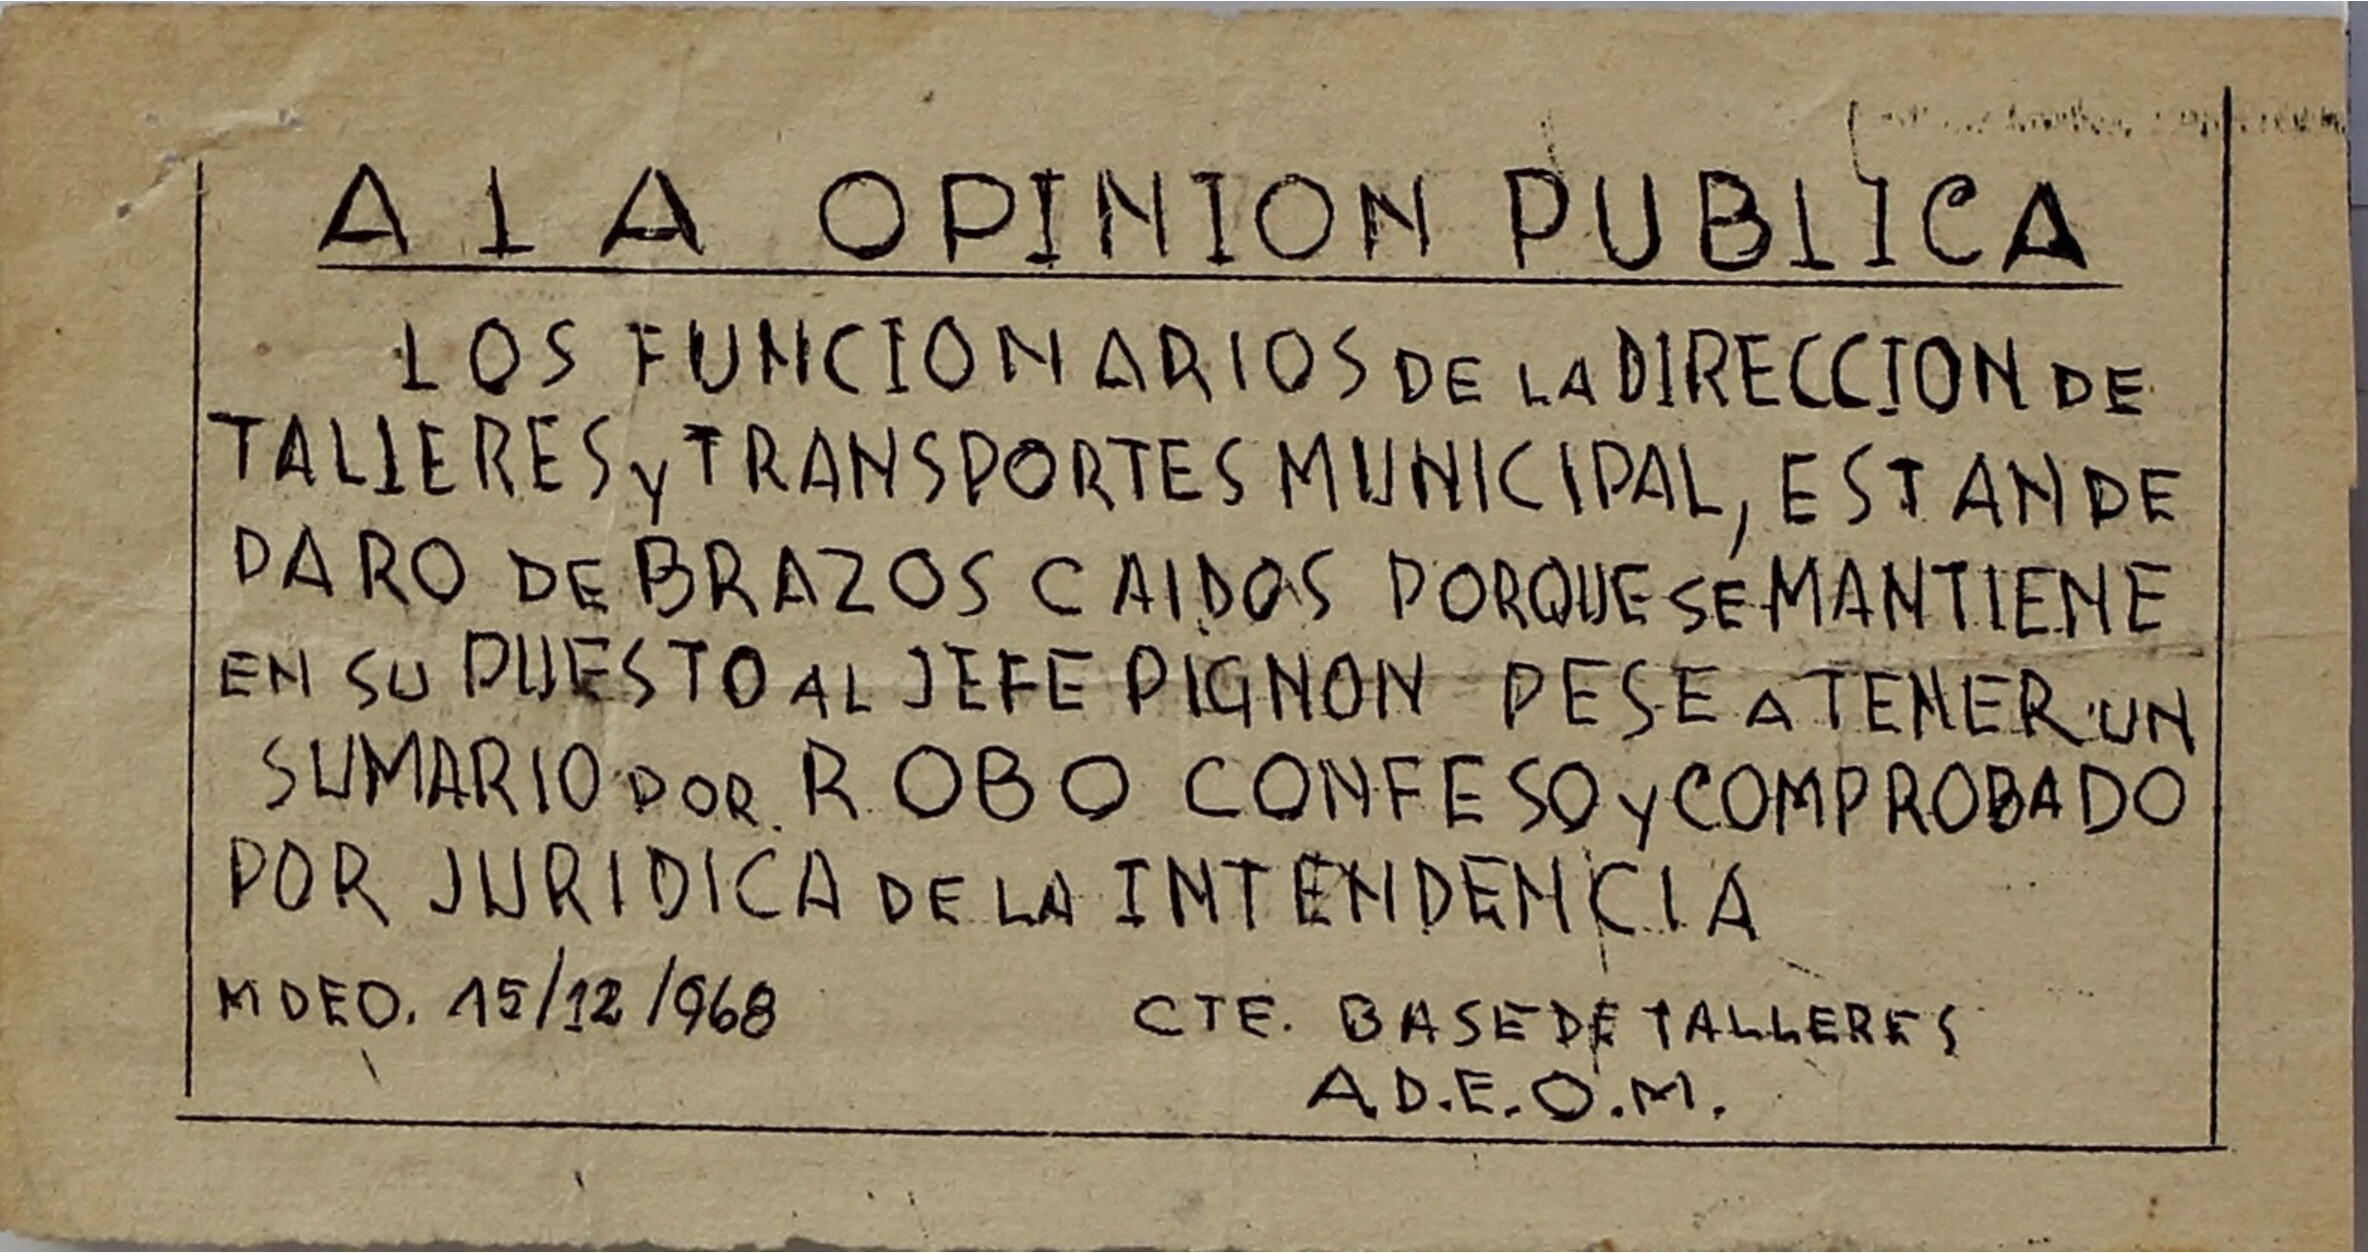 A LA OPINION PUBLICA
LOS FUNCIONARIOS DE LA DIRECCION DE
TALLERES y TRANSPORTES MUNICIPAL, ESTAN DE
PARO DE BRAZOS CAIDOS PORQUE SE MANTIENE
EN SU PUESTO AL JEFE PIGNON PESE A TENER UN
SUMARIO POR ROBO CONFESO y COMPROBADO
POR JURIDICA DE LA INTENDENCIA
MDEO. 15/12/968
CTE. BASE DE TALLERES
A.D.E.O.M.